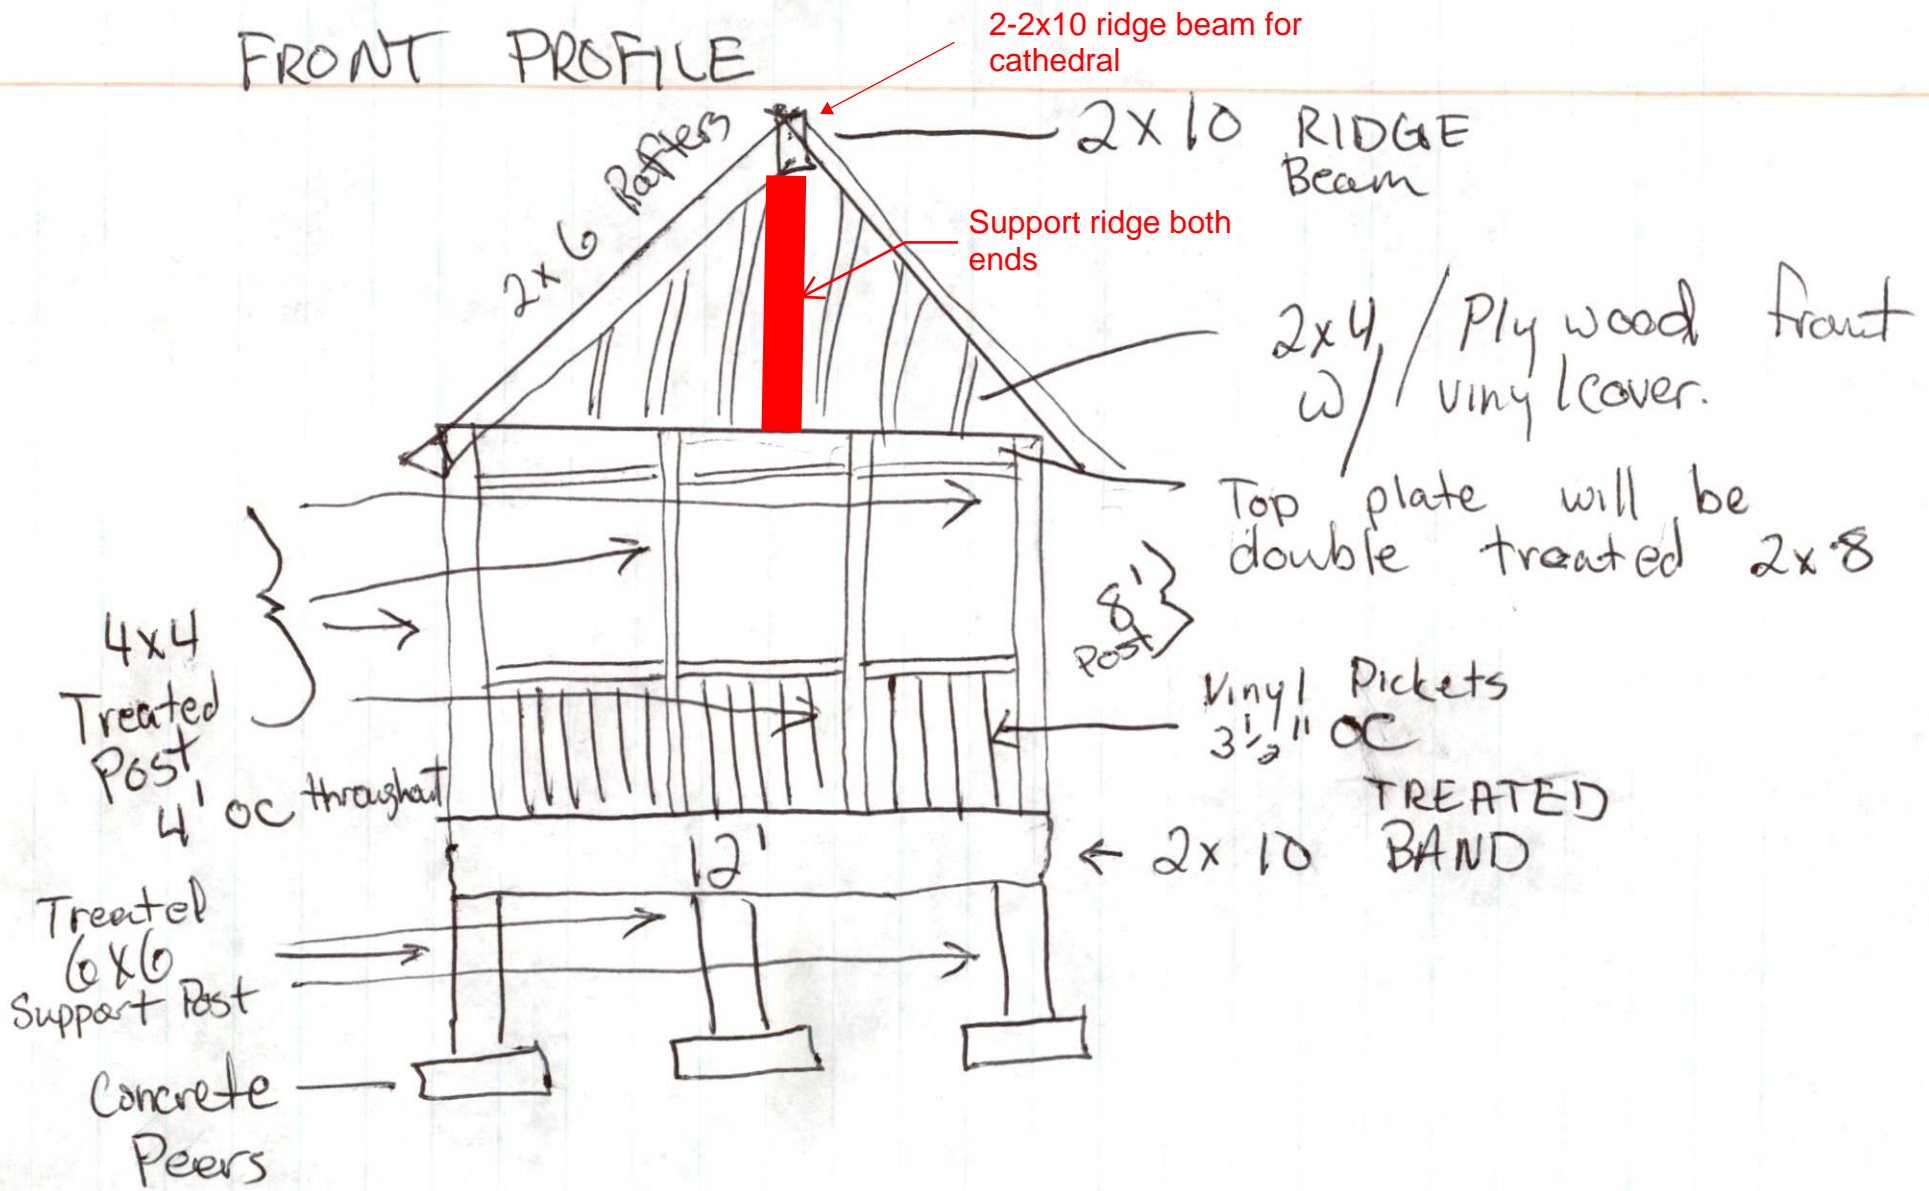 FRONT PROFILE
2-2x10 ridge beam for
cathedral
2x10 RIDGE
Beam
2x6 Rafters
Support ridge both
ends
2x4 / Plywood front
w/ vinyl cover.
Top plate will be
double treated 2x8
8'
Post
4x4
Treated
Post
4' OC throughout
Vinyl Pickets
3 1/2" OC
TREATED
2x10 BAND
12'
Treated
6x6
Support Post
Concrete
Peers